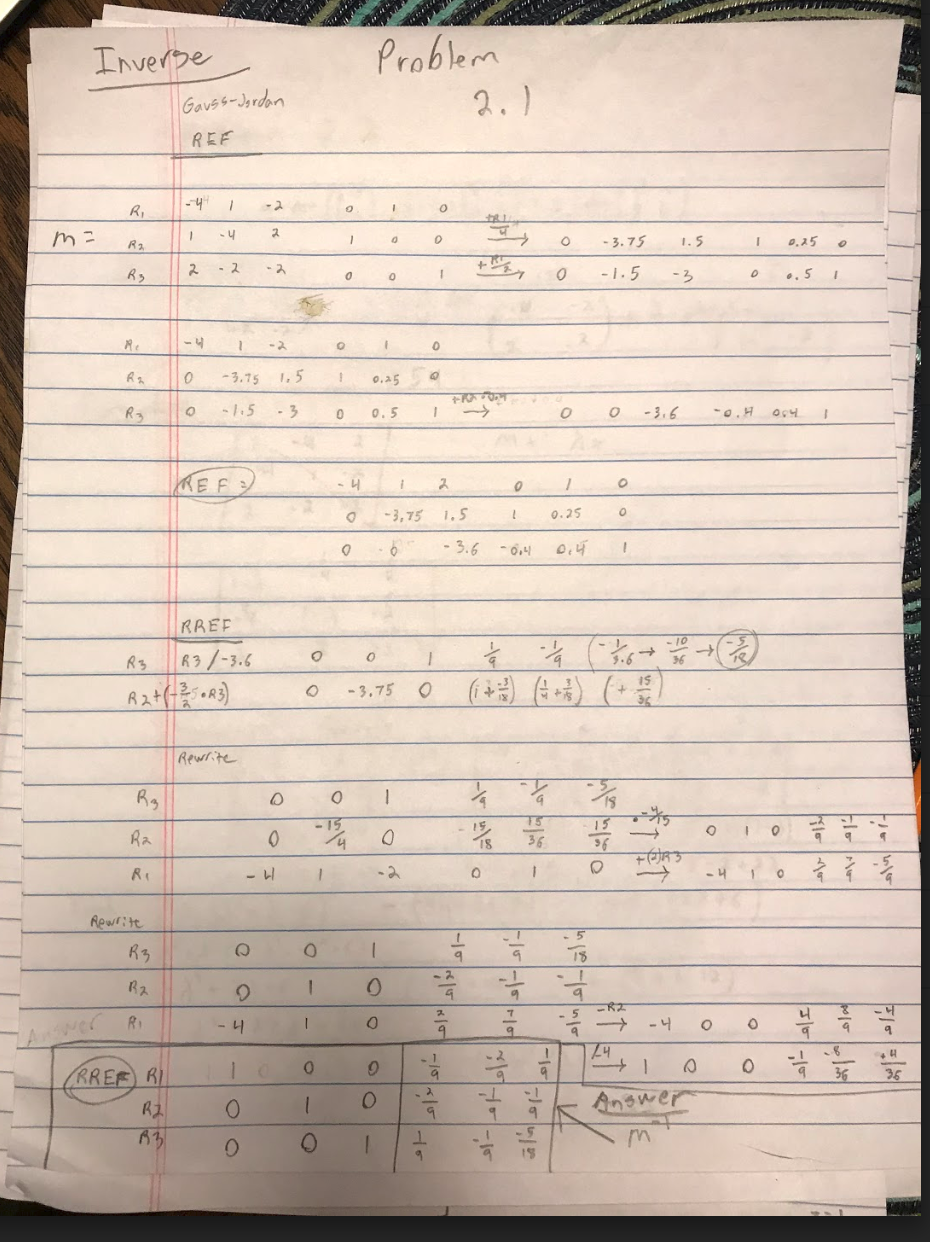 Inverse Problem
Gauss-Jordan 2.1
REF
R1 -4 1 -2 0 1 0
m = R2 1 -4 2 1 0 0 +R1/4 → 0 -3.75 1.5 1 0.25 0
R3 2 -2 -2 0 0 1 +R1/2 → 0 -1.5 -3 0 0.5 1
R1 -4 1 -2 0 1 0
R2 0 -3.75 1.5 1 0.25 0
R3 0 -1.5 -3 0 0.5 1 → 0 0 -3.6 -0.4 0.4 1
REF = -4 1 2 0 1 0
0 -3.75 1.5 1 0.25 0
0 0 -3.6 -0.4 0.4 1
RREF
R3 R3/-3.6 0 0 1 1/9 -1/9 (-1/3.6 → -10/36 → -5/18)
R2+(-3/2•R3) 0 -3.75 0 (1 + -3/18) (1/4 + 3/18) (+ 15/36)
Rewrite
R3 0 0 1 1/9 -1/9 -5/18
R2 0 -15/4 0 15/18 15/36 15/36 •-4/15 → 0 1 0 -2/9 -1/9 -1/9
R1 -4 1 -2 0 1 0 +(2)R3 → -4 1 0 2/9 7/9 -5/9
Rewrite
R3 0 0 1 1/9 -1/9 -5/18
R2 0 1 0 -2/9 -1/9 -1/9
Answer R1 -4 1 0 2/9 7/9 -5/9 -R2 → -4 0 0 4/9 8/9 -4/9
RREF R1 1 0 0 -1/9 -2/9 1/9 /-4 → 1 0 0 -1/9 -8/36 +4/36
R2 0 1 0 -2/9 -1/9 -1/9 Answer
R3 0 0 1 1/9 -1/9 -5/18 m⁻¹